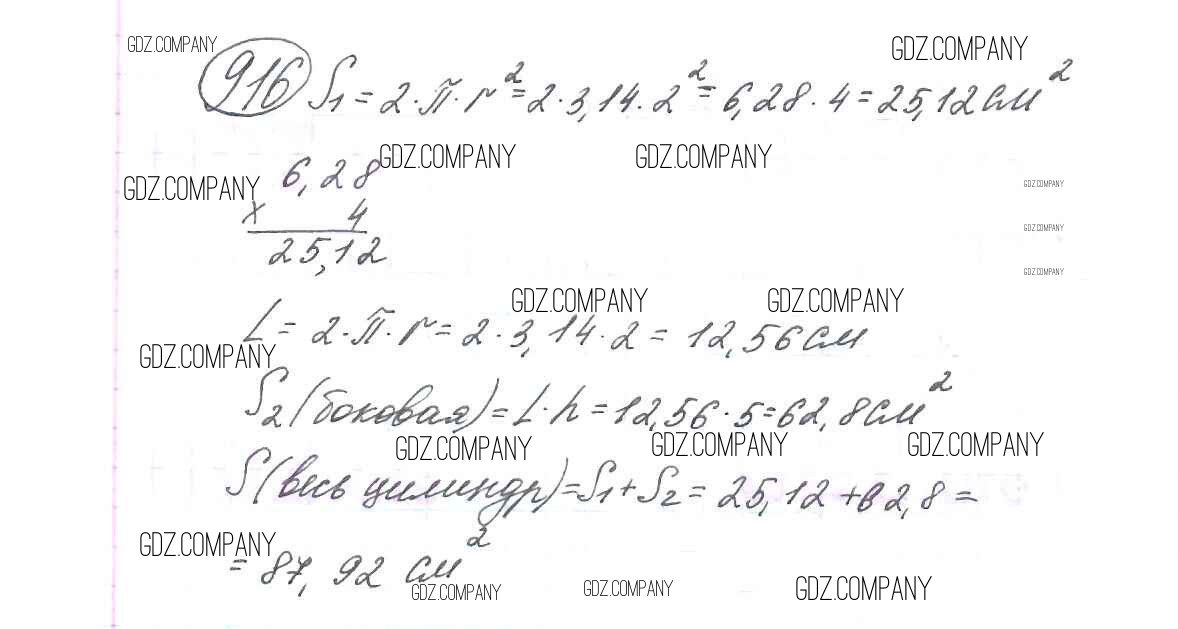 GDZ.COMPANY GDZ.COMPANY
916 S₁ = 2·π·r² = 2·3,14·2² = 6,28·4 = 25,12 см²
GDZ.COMPANY GDZ.COMPANY
GDZ.COMPANY 6,28 GDZ.COMPANY
x 4 GDZ.COMPANY
25,12
GDZ.COMPANY
GDZ.COMPANY GDZ.COMPANY
L = 2·π·r = 2·3,14·2 = 12,56 см
GDZ.COMPANY
S₂ (боковая) = L·h = 12,56·5 = 62,8 см²
GDZ.COMPANY GDZ.COMPANY GDZ.COMPANY
S (весь цилиндр) = S₁ + S₂ = 25,12 + 62,8 =
GDZ.COMPANY
= 87,92 см²
GDZ.COMPANY GDZ.COMPANY GDZ.COMPANY